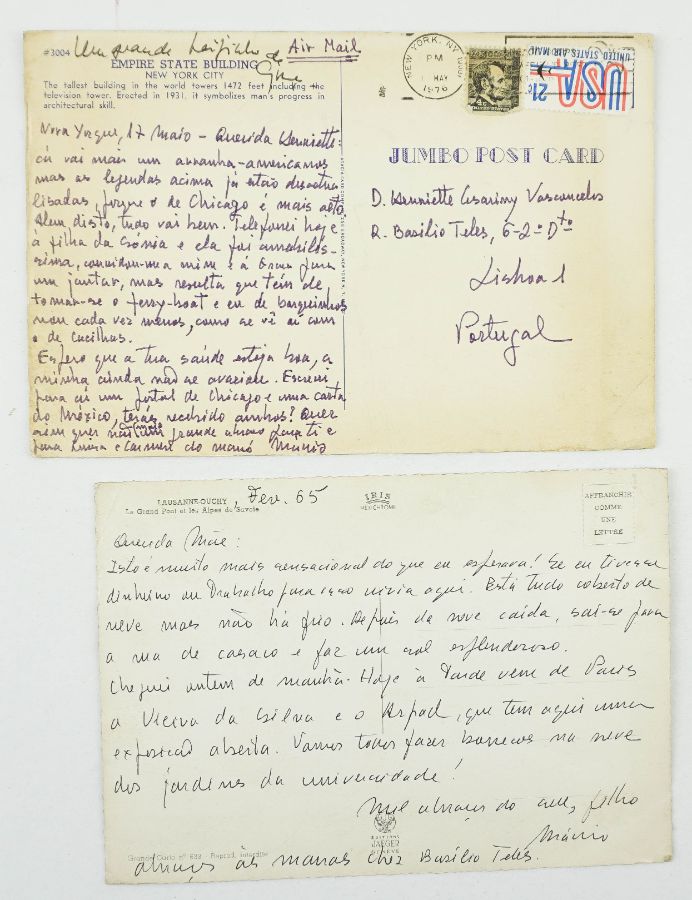 #3004 Um grande beijinho de Air Mail
EMPIRE STATE BUILDING
NEW YORK CITY
The tallest building in the world towers 1472 feet including the
television tower. Erected in 1931, it symbolizes man's progress in
architectural skill.
Nova Yorque, 17 Maio - Querida Henriette:
aí vai mais um arranha-americanos
mas as legendas acima já estão desactua
lisadas, porque o de Chicago é mais alto.
Além disto, tudo vai bem. Telefonei hoje
à filha da Sónia e ela foi amabilís-
sima, convidou-me a mim e à para
um jantar, mas resulta que têm de
tomar-se o ferry-boat e eu de barquinhos
vou cada vez menos, como se vê aí com
o de Cacilhas.
Espero que a tua saúde esteja boa, a
minha ainda não se avariou. Escrevi
para aí um postal de Chicago e uma carta
do México, terás recebido ambos? Quer
sim quer não um grande abraço para ti e
para Luisa e Carmen do mano Mario
NEW YORK, NY
PM
MAY
1976
4c
21c
USA
UNITED STATES AIR MAIL
JUMBO POST CARD
D. Henriette Cesariny Vasconcelos
R. Basílio Teles, 6-2º Dtº
Lisboa 1
Portugal
LAUSANNE-OUCHY, Fev. 65
Le Grand Pont et les Alpes de Savoie
IRIS
MEXICHROME
AFFRANCHIR
COMME
UNE
LETTRE
Querida Mãe:
Isto é muito mais sensacional do que eu esperava! Se eu tivesse
dinheiro ou Trabalho para isso vivia aqui. Está tudo coberto de
neve mas não há frio. Depois da neve caída, sai-se para
a rua de casaco e faz um sol esplendoroso.
Cheguei ontem de manhã. Hoje à Tarde vem de Paris
a Vieira da Silva e o Arpad, que tem aqui uma
exposição aberta. Vamos todos fazer bonecos na neve
dos jardins da universidade!
Mil abraços do seu, filho
Mário
EDITIONS
JAEGER
GENEVE
Grande Carte nº 638 Reprod. interdite
abraços às manas Chez Basílio Teles.